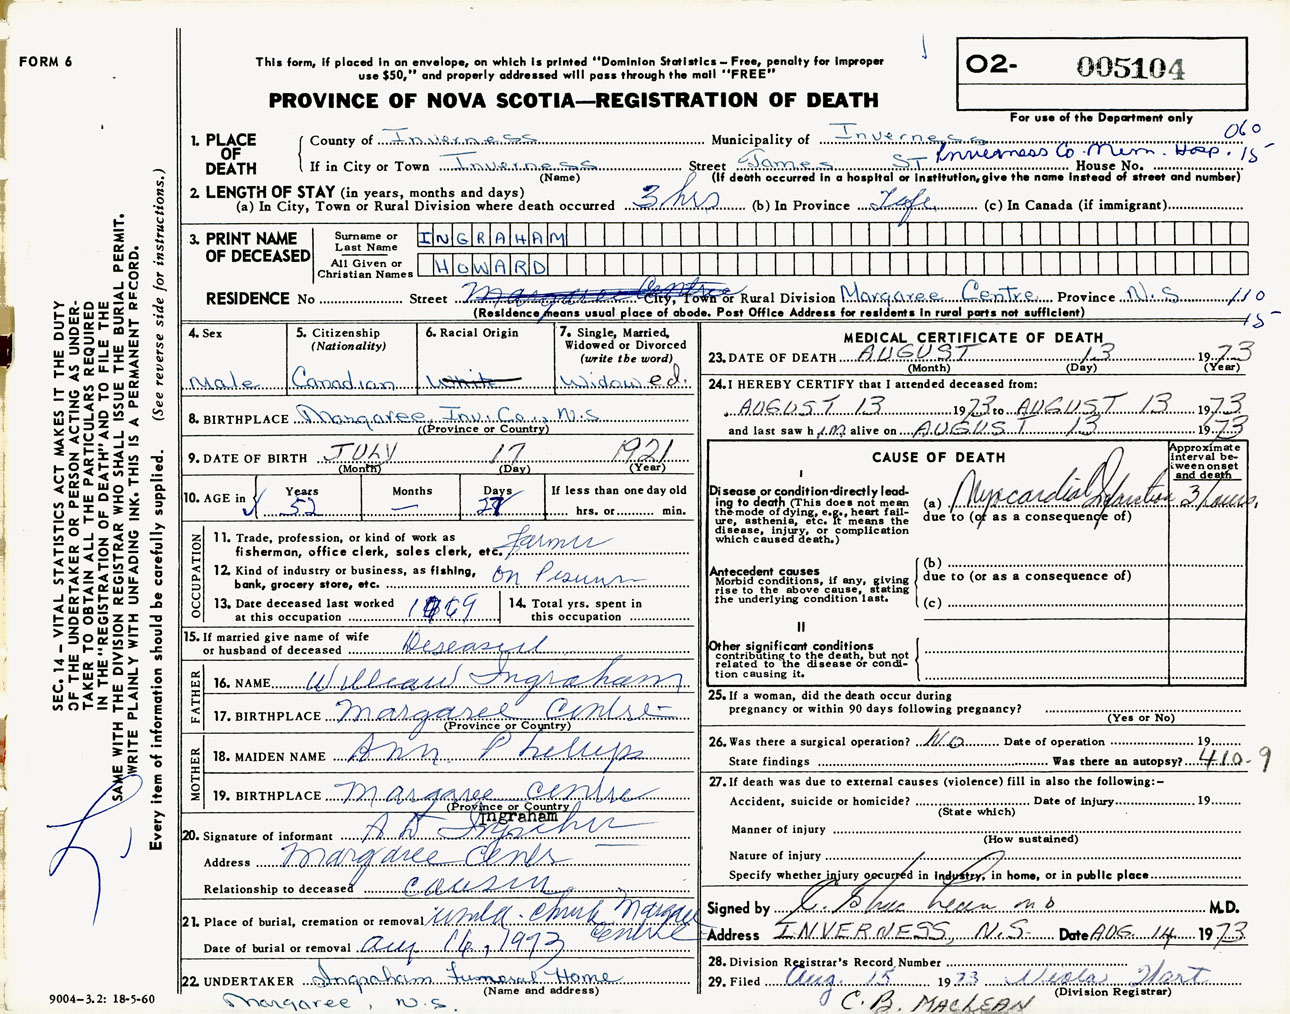 FORM 6
This form, if placed in an envelope, on which is printed "Dominion Statistics – Free, penalty for improper
use $50," and properly addressed will pass through the mail "FREE"
PROVINCE OF NOVA SCOTIA—REGISTRATION OF DEATH
O2- 005104
For use of the Department only
1. PLACE OF DEATH
County of Inverness Municipality of Inverness 060
If in City or Town Inverness Street James ST Inverness Co. Mem. Hosp. House No. 15
(Name) (If death occurred in a hospital or institution, give the name instead of street and number)
2. LENGTH OF STAY (in years, months and days)
(a) In City, Town or Rural Division where death occurred 3 hrs (b) In Province Life (c) In Canada (if immigrant)
3. PRINT NAME OF DECEASED
Surname or Last Name INGRAHAM
All Given or Christian Names HOWARD
RESIDENCE No Street Margaree Centre City, Town or Rural Division Margaree Centre Province N.S 110
(Residence means usual place of abode. Post Office Address for residents in rural parts not sufficient) 15
4. Sex
Male
5. Citizenship
(Nationality)
Canadian
6. Racial Origin
White
7. Single, Married,
Widowed or Divorced
(write the word)
Widowed.
8. BIRTHPLACE Margaree, Inv. Co., N.S
(Province or Country)
9. DATE OF BIRTH JULY 17 1921
(Month) (Day) (Year)
10. AGE in
Years Months Days If less than one day old
52 — 27 hrs. or min.
OCCUPATION
11. Trade, profession, or kind of work as
fisherman, office clerk, sales clerk, etc. Farmer
12. Kind of industry or business, as fishing,
bank, grocery store, etc. on
13. Date deceased last worked
at this occupation 1969
14. Total yrs. spent in
this occupation
15. If married give name of wife
or husband of deceased Deseased
FATHER
16. NAME William Ingraham
17. BIRTHPLACE Margaree Centre
(Province or Country)
MOTHER
18. MAIDEN NAME Ann Phillips
19. BIRTHPLACE Margaree Centre
(Province or Country
Ingraham
20. Signature of informant A W
Address Margaree Centre
Relationship to deceased cousin
21. Place of burial, cremation or removal United Church Margaree
Centre
Date of burial or removal Aug 16, 1973
22. UNDERTAKER Ingraham Funeral Home
(Name and address)
Margaree, N.S.
MEDICAL CERTIFICATE OF DEATH
23. DATE OF DEATH AUGUST 13 1973
(Month) (Day) (Year)
24. I HEREBY CERTIFY that I attended deceased from:
AUGUST 13 1973 to AUGUST 13 1973
and last saw him alive on AUGUST 13 1973
CAUSE OF DEATH
Approximate interval between onset and death
I
Disease or condition directly leading to death (This does not mean
the mode of dying, e.g., heart failure, asthenia, etc. It means the
disease, injury, or complication
which caused death.)
(a) Myocardial Infarction 3 hours,
due to (or as a consequence of)
Antecedent causes
Morbid conditions, if any, giving
rise to the above cause, stating
the underlying condition last.
(b)
due to (or as a consequence of)
(c)
II
Other significant conditions
contributing to the death, but not
related to the disease or condition causing it.
25. If a woman, did the death occur during
pregnancy or within 90 days following pregnancy?
(Yes or No)
26. Was there a surgical operation? NO Date of operation 19
State findings Was there an autopsy? 410-9
27. If death was due to external causes (violence) fill in also the following:–
Accident, suicide or homicide? Date of injury 19
(State which)
Manner of injury
(How sustained)
Nature of injury
Specify whether injury occurred in industry, in home, or in public place
Signed by M.D.
Address INVERNESS, N.S. Date AUG. 14 1973
28. Division Registrar's Record Number
29. Filed Aug. 15 1973 Hart
(Division Registrar)
C. B. MACLEAN
SEC. 14 – VITAL STATISTICS ACT MAKES IT THE DUTY
OF THE UNDERTAKER OR PERSON ACTING AS UNDER-
TAKER TO OBTAIN ALL THE PARTICULARS REQUIRED
IN THE "REGISTRATION OF DEATH" AND TO FILE THE
SAME WITH THE DIVISION REGISTRAR WHO SHALL ISSUE THE BURIAL PERMIT.
WRITE PLAINLY WITH UNFADING INK. THIS IS A PERMANENT RECORD.
Every item of information should be carefully supplied. (See reverse side for instructions.)
9004-3.2: 18-5-60